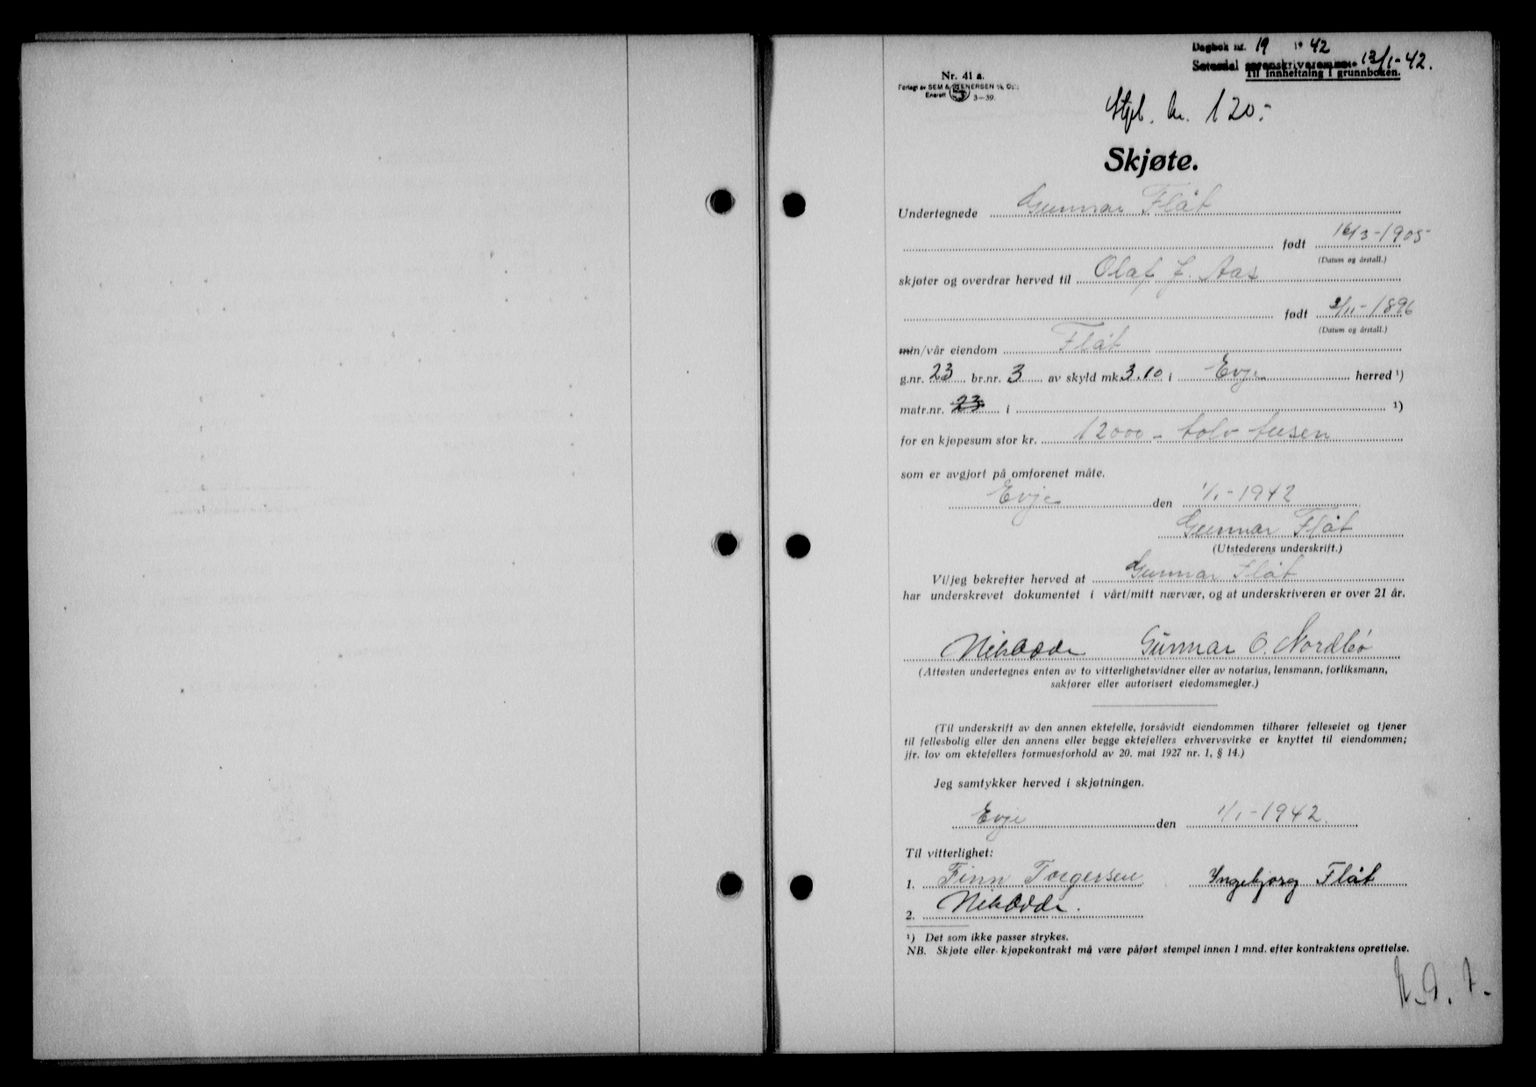 Dagbok nr. 19 19 42
Setesdal sorenskriverembete 13/1-42.
Til innheftning i grunnboken.
Nr. 41 a.
Forlagt av SEM & STENERSEN A/S, Oslo
Enerett 3-39.
Stpl. kr. 120.-
Skjøte.
Undertegnede Gunnar Flåt
født 16/3-1905
(Datum og årstall.)
skjøter og overdrar herved til Olaf J. Aas
født 2/11-1896
(Datum og årstall.)
min/vår eiendom Flåt
g.nr. 23 br.nr. 3 av skyld mk. 3.10 i Evje herred ¹)
matr.nr. 23 i ¹)
for en kjøpesum stor kr. 12000 - tolv tusen
som er avgjort på omforenet måte.
Evje den 1/1-1942
Gunnar Flåt
(Utstederens underskrift.)
Vi/jeg bekrefter herved at Gunnar Flåt
har underskrevet dokumentet i vårt/mitt nærvær, og at underskriveren er over 21 år.
Nils Odde Gunnar O. Nordbö
(Attesten undertegnes enten av to vitterlighetsvidner eller av notarius, lensmann, forliksmann,
sakfører eller autorisert eiedomsmegler.)
(Til underskrift av den annen ektefelle, forsåvidt eiendommen tilhører felleseiet og tjener
til fellesbolig eller den annens eller begge ektefellers erhvervsvirke er knyttet til eiendommen;
jfr. lov om ektefellers formuesforhold av 20. mai 1927 nr. 1, § 14.)
Jeg samtykker herved i skjøtningen.
Evje den 1/1-1942.
Til vitterlighet:
1. Finn Torgersen Yngebjorg Flåt
2. Nils Odde.
¹) Det som ikke passer strykes.
NB. Skjøte eller kjøpekontrakt må være påført stempel innen 1 mnd. efter kontraktens oprettelse.